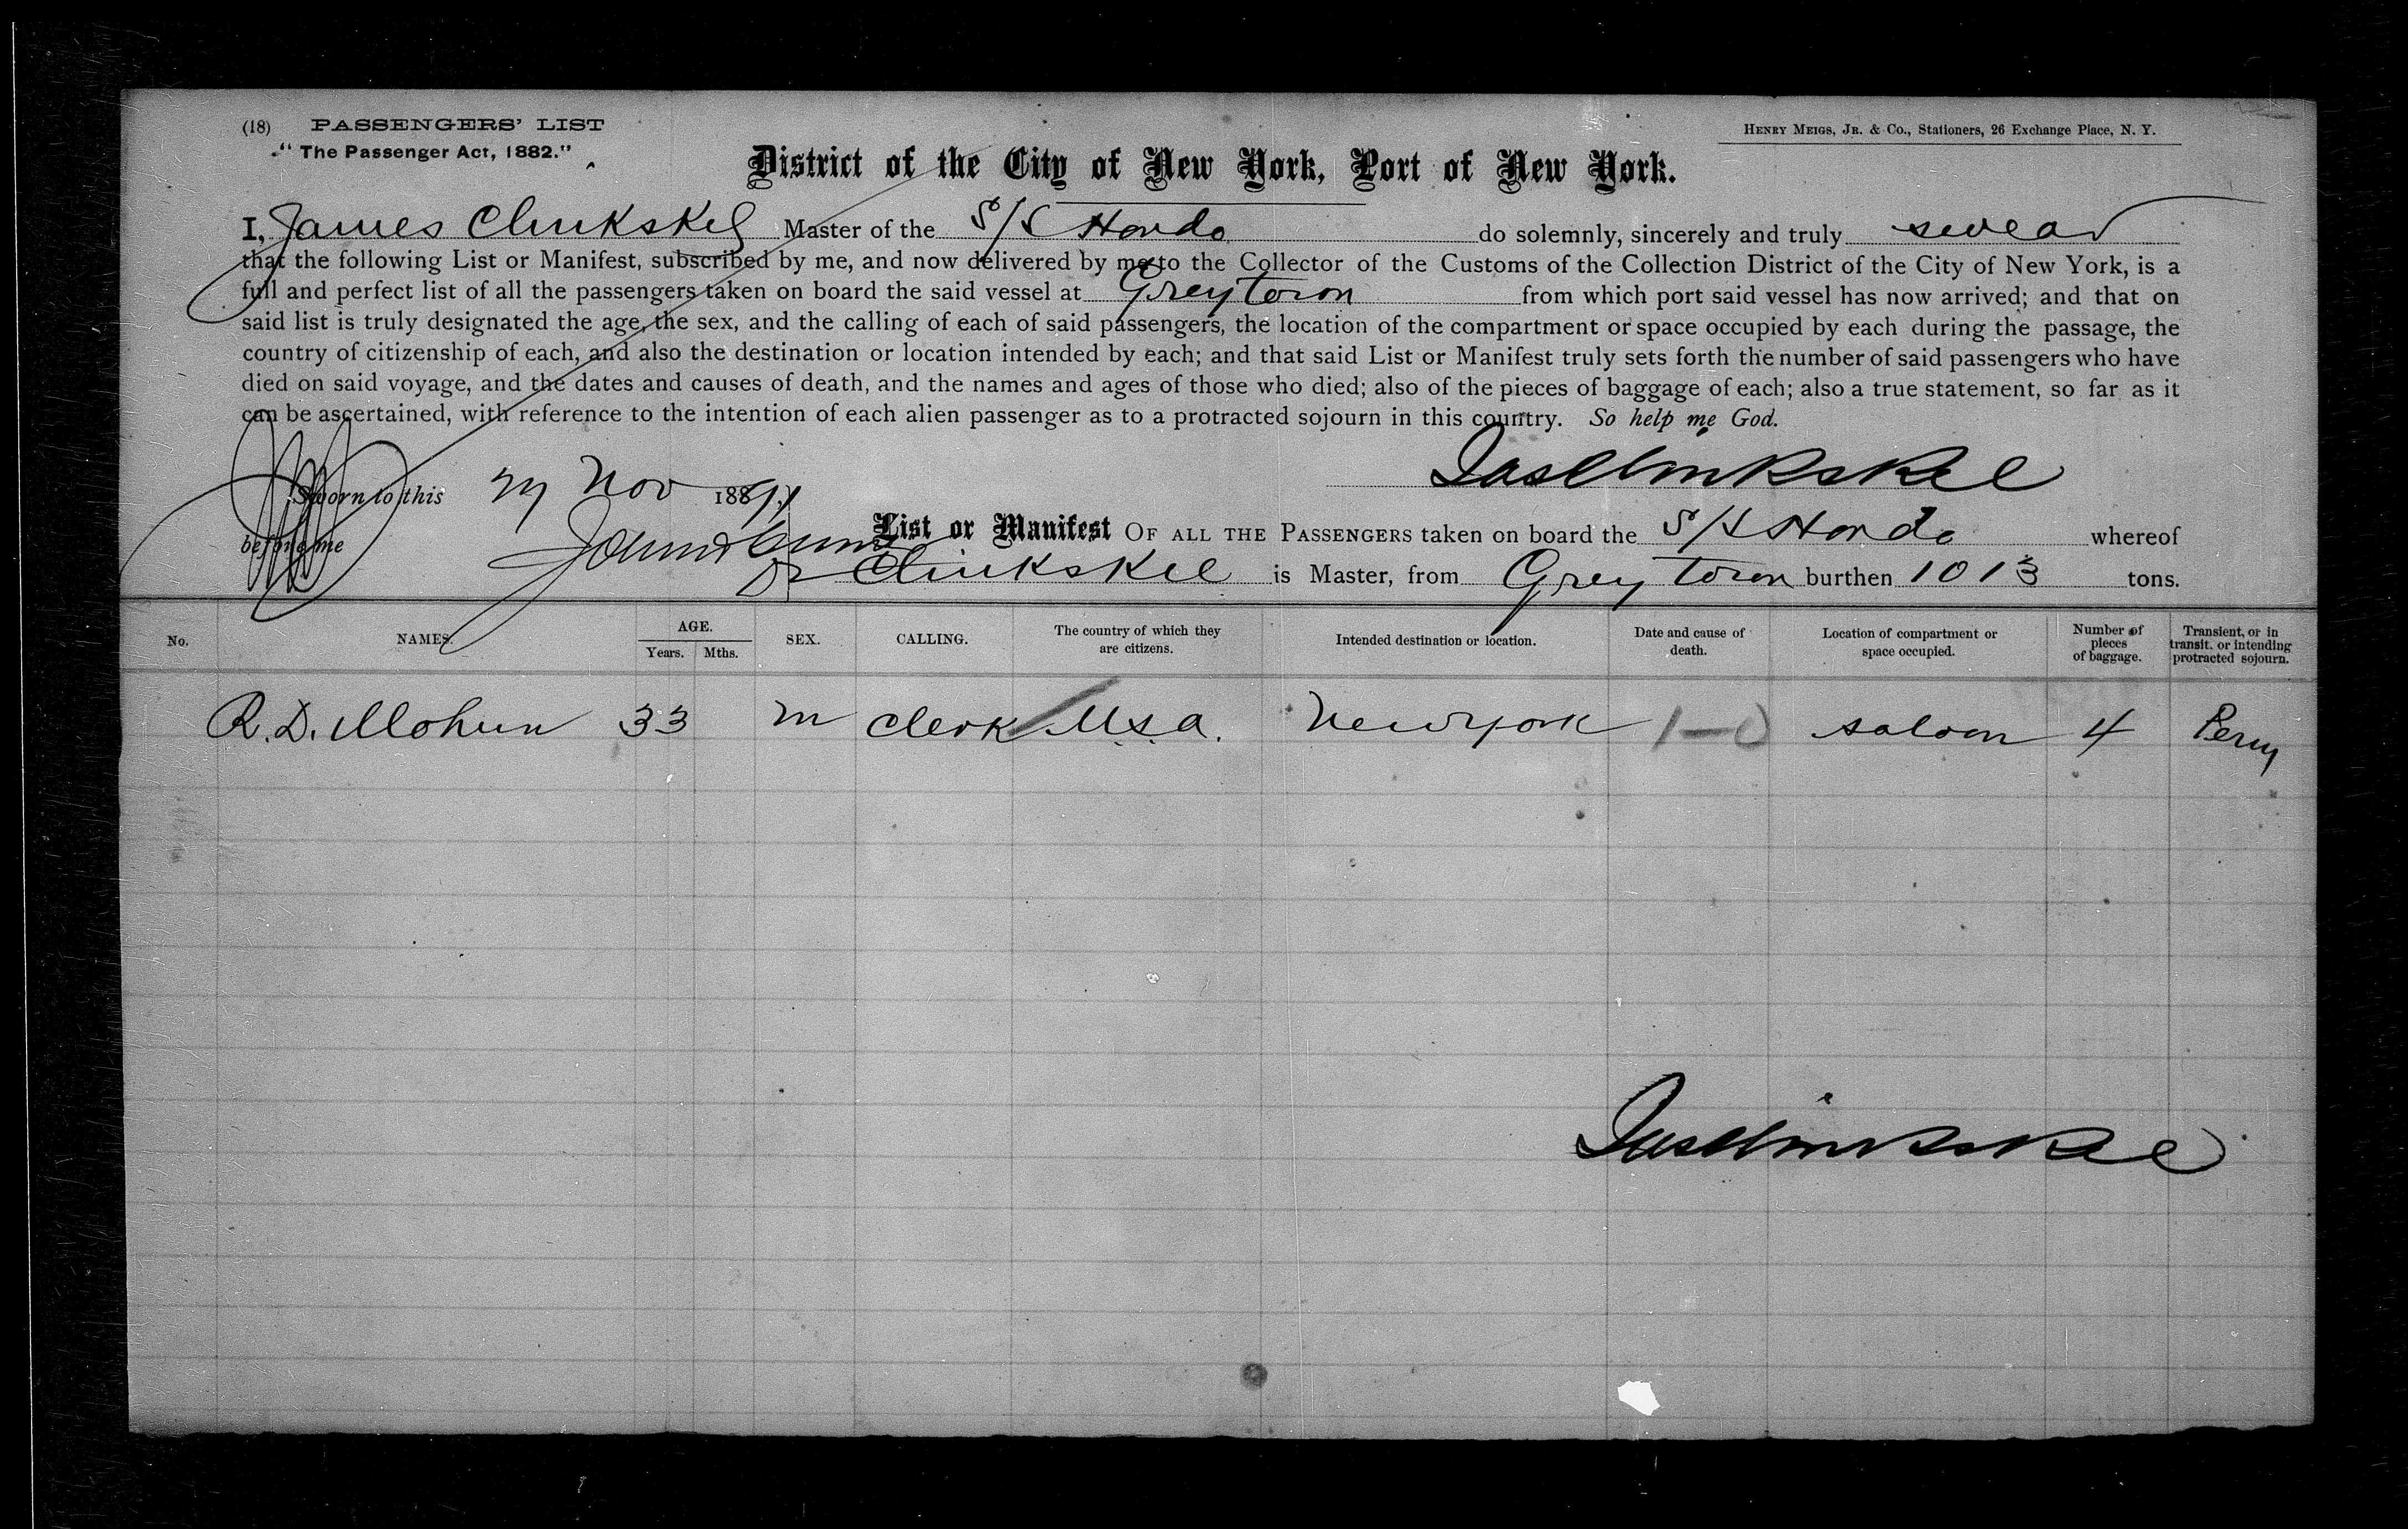 (18) PASSENGERS' LIST
"The Passenger Act, 1882."
HENRY MEIGS, JR. & CO., Stationers, 26 Exchange Place, N. Y.
District of the City of New York, Port of New York.
I, James Clinkskel Master of the S/S Hondo do solemnly, sincerely and truly swear
that the following List or Manifest, subscribed by me, and now delivered by me to the Collector of the Customs of the Collection District of the City of New York, is a
full and perfect list of all the passengers taken on board the said vessel at Greytown from which port said vessel has now arrived; and that on
said list is truly designated the age, the sex, and the calling of each of said passengers, the location of the compartment or space occupied by each during the passage, the
country of citizenship of each, and also the destination or location intended by each; and that said List or Manifest truly sets forth the number of said passengers who have
died on said voyage, and the dates and causes of death, and the names and ages of those who died; also of the pieces of baggage of each; also a true statement, so far as it
can be ascertained, with reference to the intention of each alien passenger as to a protracted sojourn in this country. So help me God.
Jas Clinkskel
Sworn to this Nov 1891
before me
List or Manifest OF ALL THE PASSENGERS taken on board the S/S Hondo whereof
Clinkskel is Master, from Grey Town burthen 1013 tons.
No. NAMES. AGE. Years. Mths. SEX. CALLING. The country of which they are citizens. Intended destination or location. Date and cause of death. Location of compartment or space occupied. Number of pieces of baggage. Transient, or in transit, or intending protracted sojourn.
R. D. Mohun 33 m Clerk U.S.A. New York 1-0 saloon 4
Jas Clinkskel